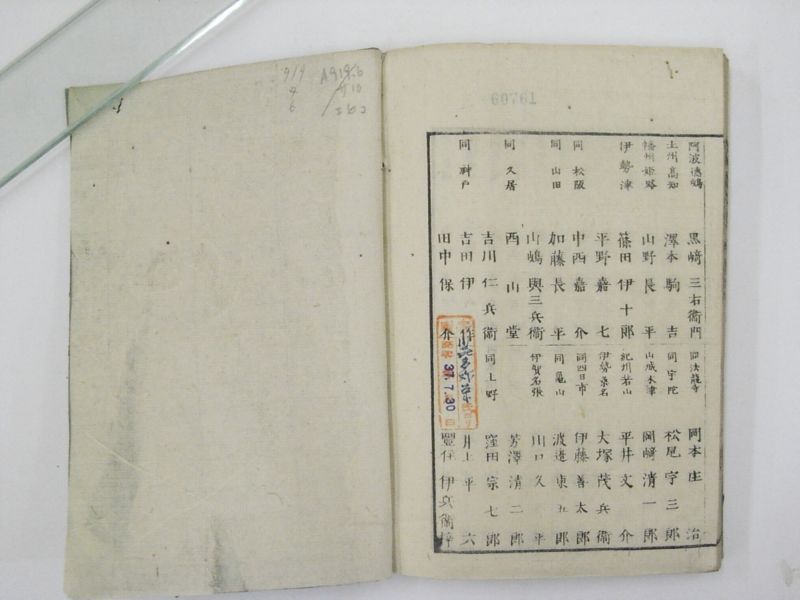 阿波徳嶋 黒﨑三右衛門
土州高知 澤本駒吉
播州姫路 山野長平
伊勢津 篠田伊十郎
平野嘉七
同松阪 中西嘉介
同山田 加藤長平
山嶋與三兵衛
同久居 西山堂
吉川仁兵衛
同神戸 吉田伊
田中保介
同法龍寺 岡本庄治
同宇陀 松尾宇三郎
山城木津 岡﨑清一郎
紀州若山 平井文介
伊勢桑名 大塚茂兵衛
同四日市 伊藤善太郎
同亀山 波邊東五郎
伊賀名張 川口久平
芳澤清二郎
同上野 窪田宗七郎
井上平六
豐住伊兵衛
60761
919
4
6
37.7.30